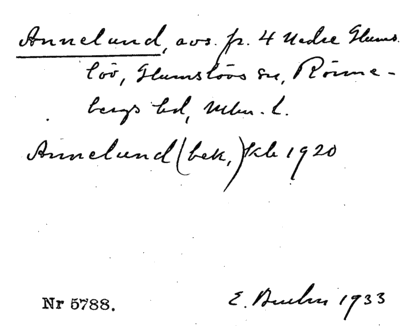 Annelund, avs. fr. 4 Nedre Glums-
löv, Glumslövs sn, Rönne-
bergs hd, Mlm. l.
Annelund (bek.) Kb 1920
Nr 5788.
E. 1933